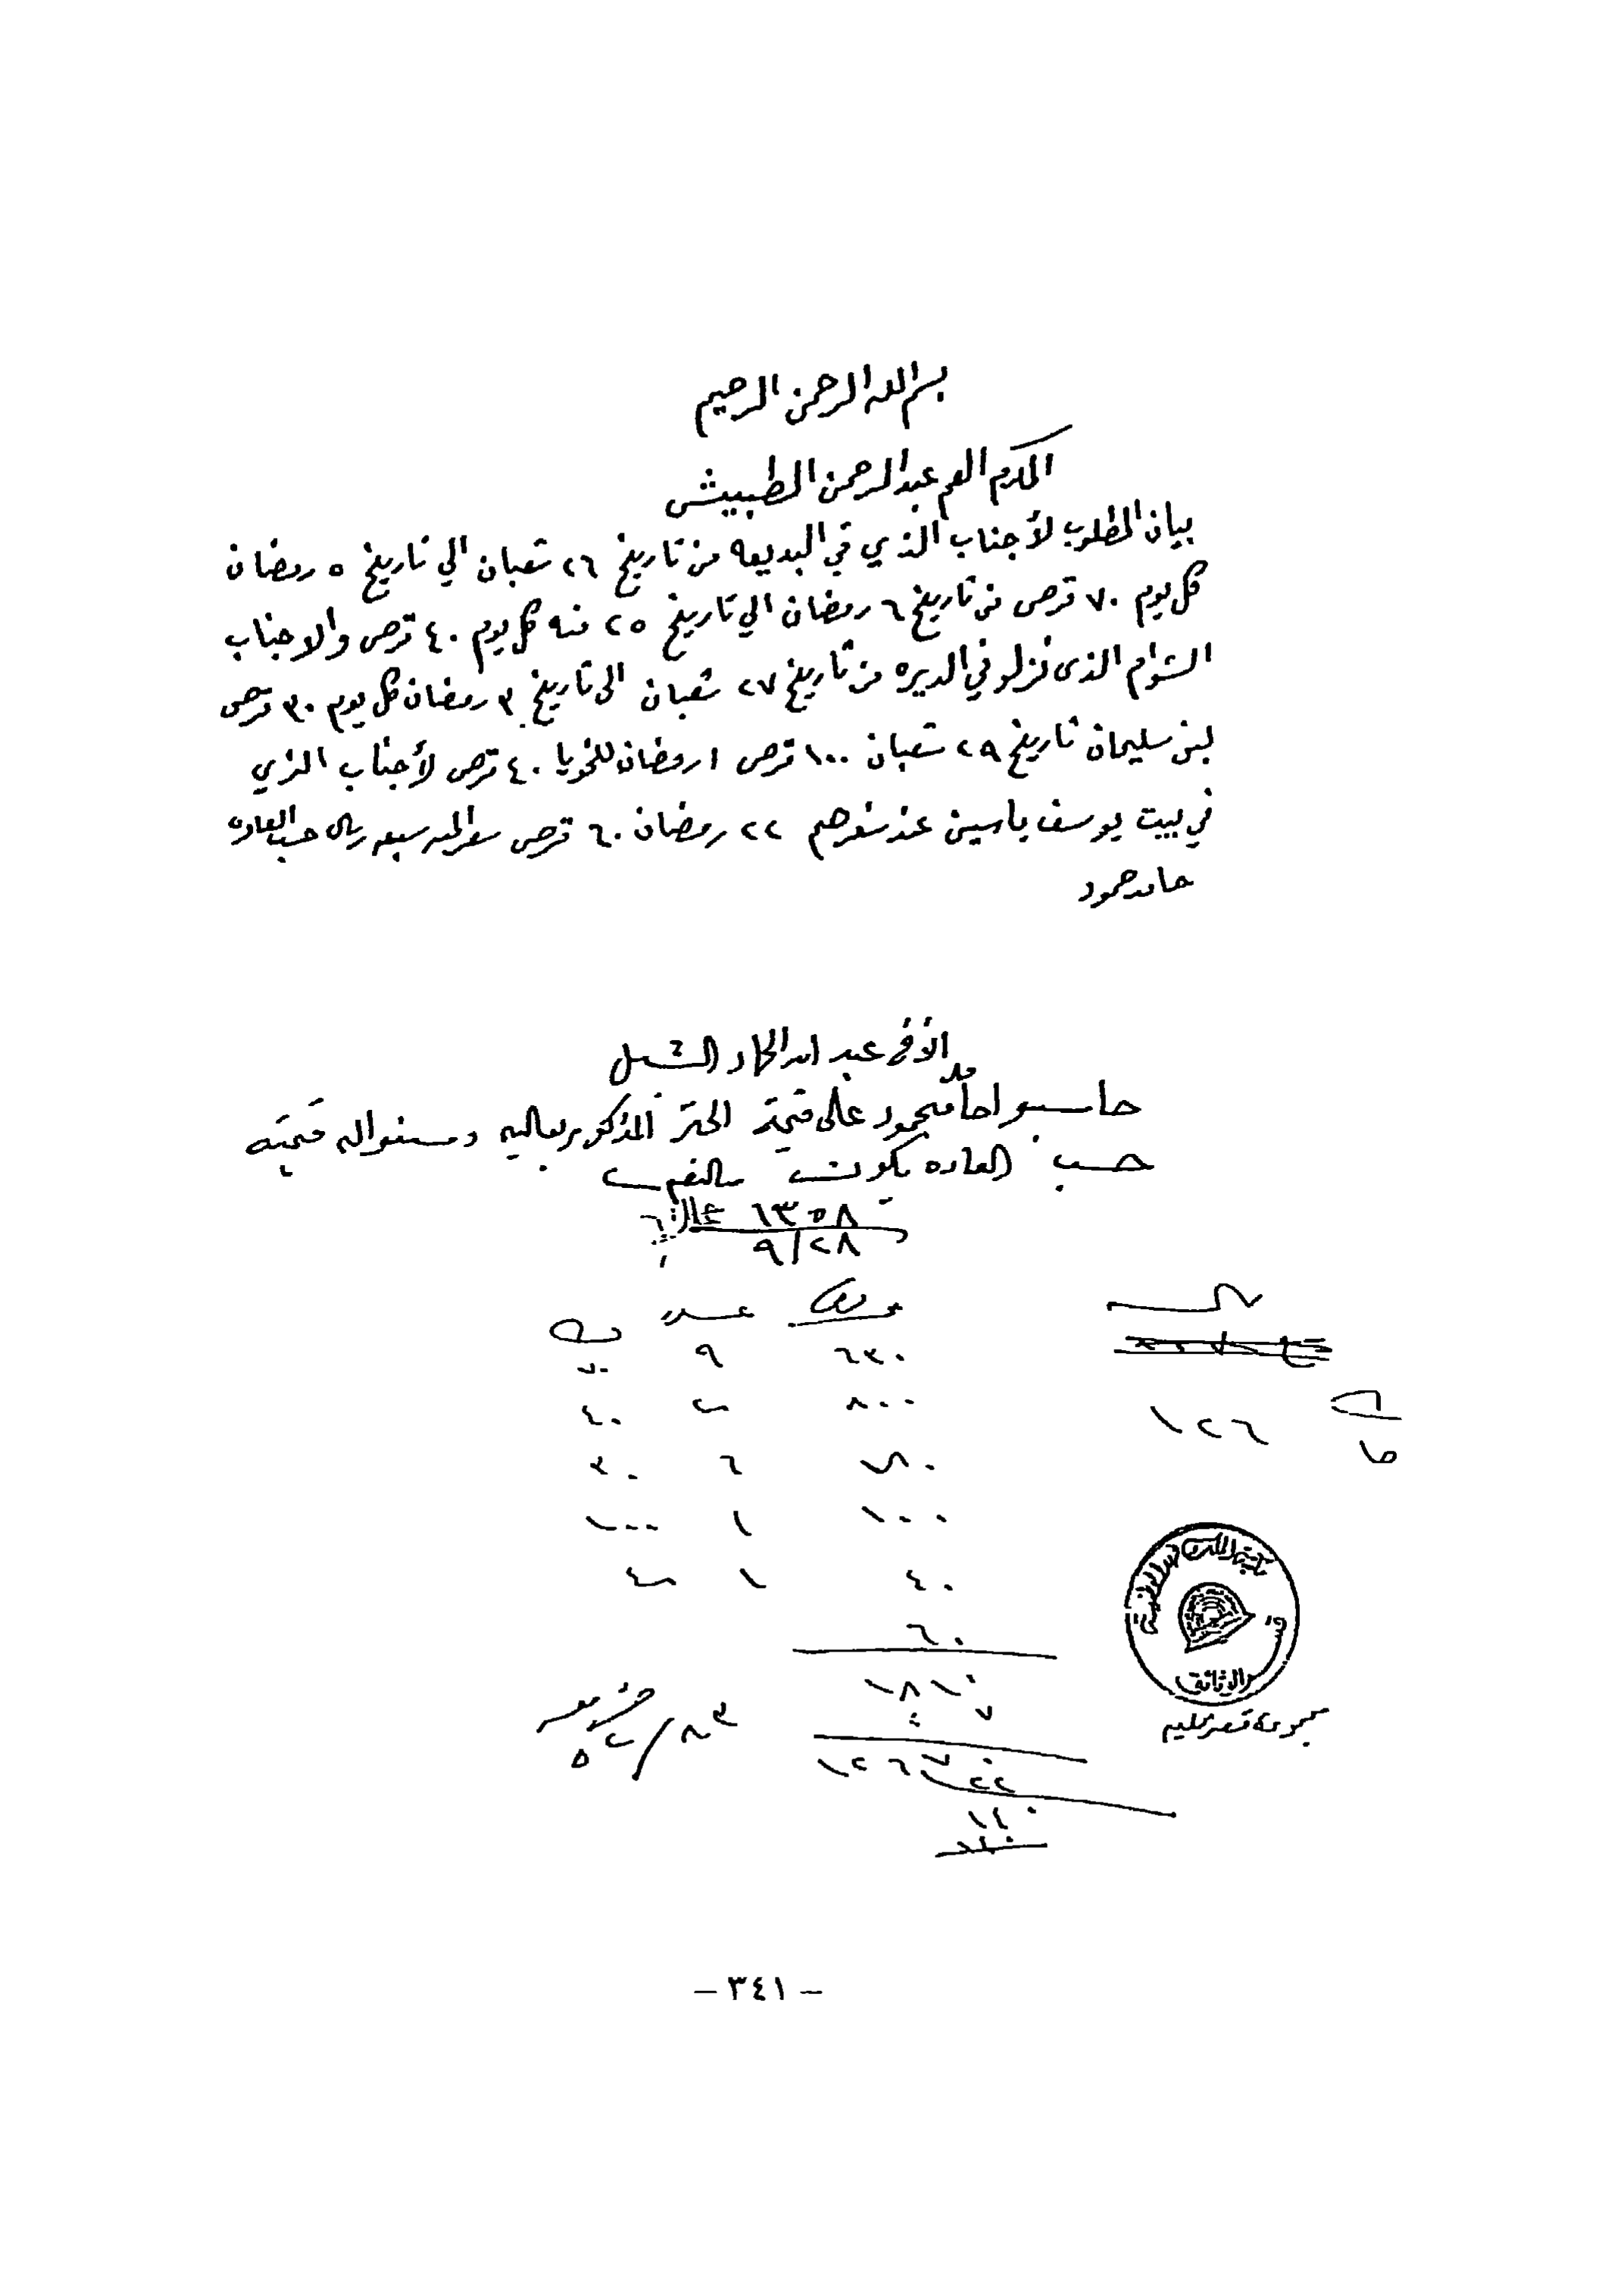 بسم الله الرحمن الرحيم
المكرم العم عبدالرحمن الطبيشي
بيان المطلوب لأجناب الذي في البديعه من تاريخ ٢٦ شعبان الي تاريخ ٥ رمضان
كل يوم ٧٠ قرص من تاريخ ٦ رمضان الي تاريخ ٢٥ منه كل يوم ٤٠ قرص والاجناب
الشوام الذى نزلو في الديره من تاريخ ٢٧ شعبان الى تاريخ ٣ رمضان كل يوم ٣٠ قرص
لبن سليمان تاريخ ٢٩ شعبان ١٠٠ قرص ١ رمضان للخويا ٤٠ قرص لأجناب الذي
في بيت يوسف ياسين عند سفرهم ٢٢ رمضان ٦٠ قرص سعر الميه سبعه ريال حسب العاده
حامد حمود
الأفخ عبدالله
حاسبوا حامد حمود على قيمة المذكور قيمته
حسب العاده يكون
١٣٥٨
٩/٢٨
عدد
٦٣٠ ٩ ٧٠
٨٠٠ ٢٠ ٤٠
١٨٠ ٦ ٣٠
١٠٠ ١ ١٠٠
٤٠ ١ ٤٠
١٢٦
٦٠
١٨١٠
٧
١٢٦٧٠
مكتبة الملك فهد الوطنية
الوثائق
مجموعة قصر الحكم
– ٣٤١ –